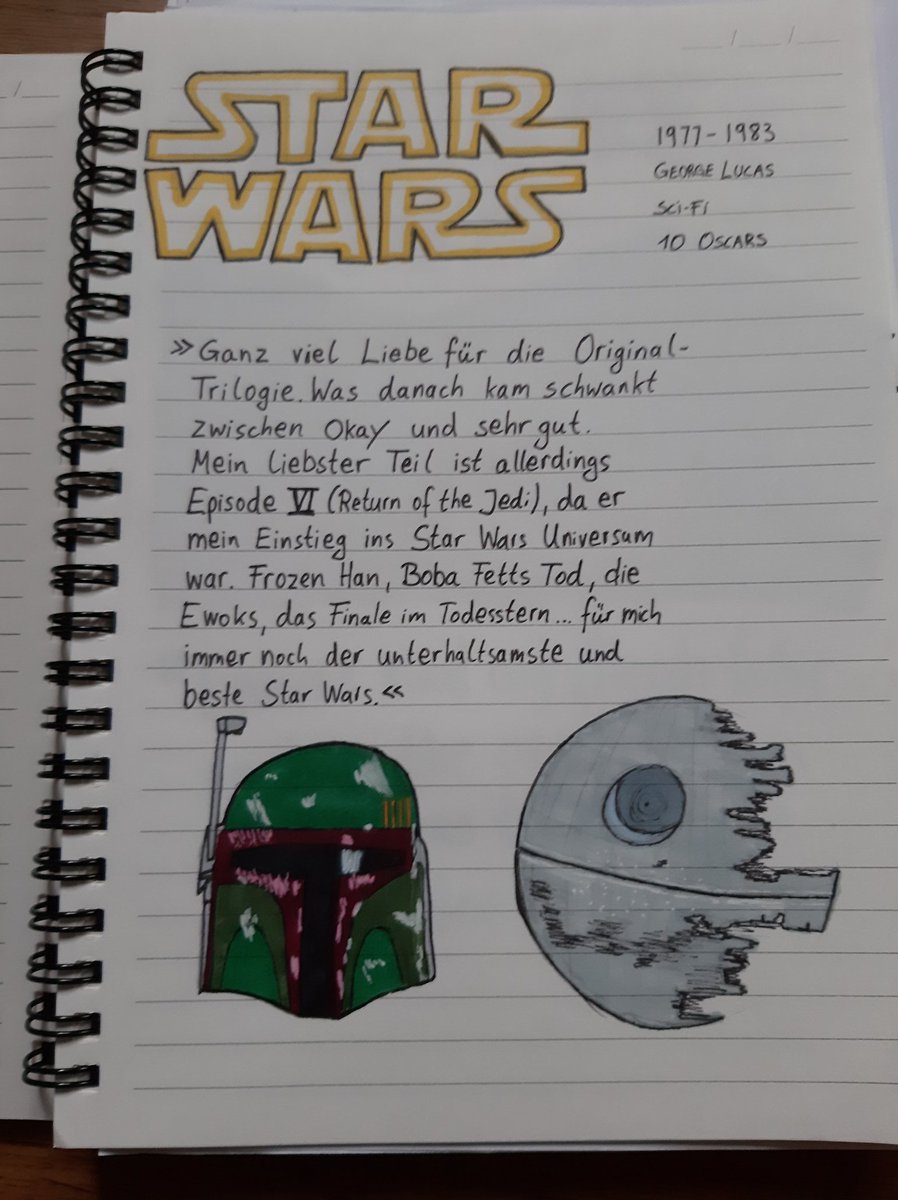 STAR
WARS
1977-1983
GEORGE LUCAS
SCI-FI
10 OSCARS
»Ganz viel Liebe für die Original-
Trilogie. Was danach kam schwankt
zwischen Okay und sehr gut.
Mein liebster Teil ist allerdings
Episode VI (Return of the Jedi), da er
mein Einstieg ins Star Wars Universum
war. Frozen Han, Boba Fetts Tod, die
Ewoks, das Finale im Todesstern... für mich
immer noch der unterhaltsamste und
beste Star Wars.«